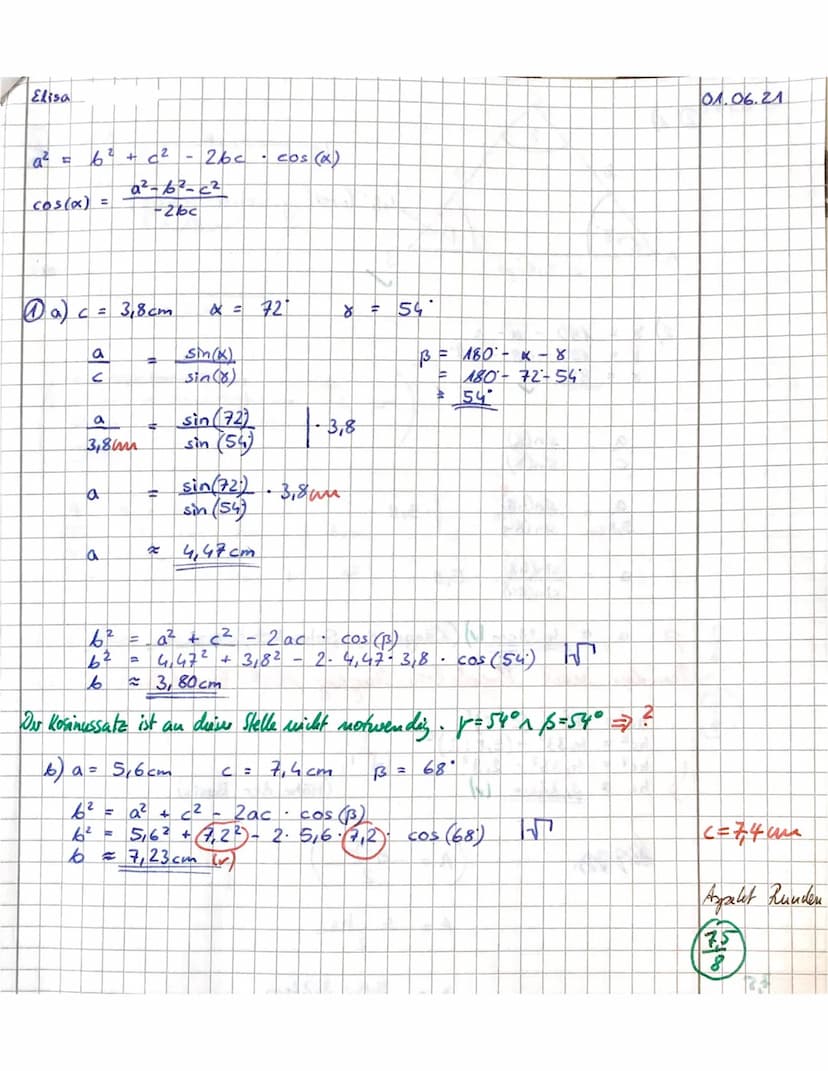 Elisa
01.06.21
a² = b² + c² - 2bc · cos(α)
cos(α) = (a²-b²-c²)/(-2bc)
① a) c = 3,8cm α = 72° γ = 54°
a/c = sin(α)/sin(γ)
β = 180° - α - γ
= 180° - 72° - 54°
= 54°
a/3,8cm = sin(72°)/sin(54°) | · 3,8
a = sin(72°)/sin(54°) · 3,8cm
a ≈ 4,47cm
b² = a² + c² - 2ac · cos(β)
b² = 4,47² + 3,8² - 2 · 4,47 · 3,8 · cos(54°) |√
b ≈ 3,80cm
Der Kosinussatz ist an dieser Stelle nicht notwendig. γ=54° ∧ β=54° ⇒ ?
b) a = 5,6cm c = 7,4cm β = 68°
b² = a² + c² - 2ac · cos(β)
b² = 5,6² + 7,2² - 2 · 5,6 · 7,2 · cos(68°) |√
c=7,4cm
b ≈ 7,23cm (v)
Aspekt Runden
7,5/8